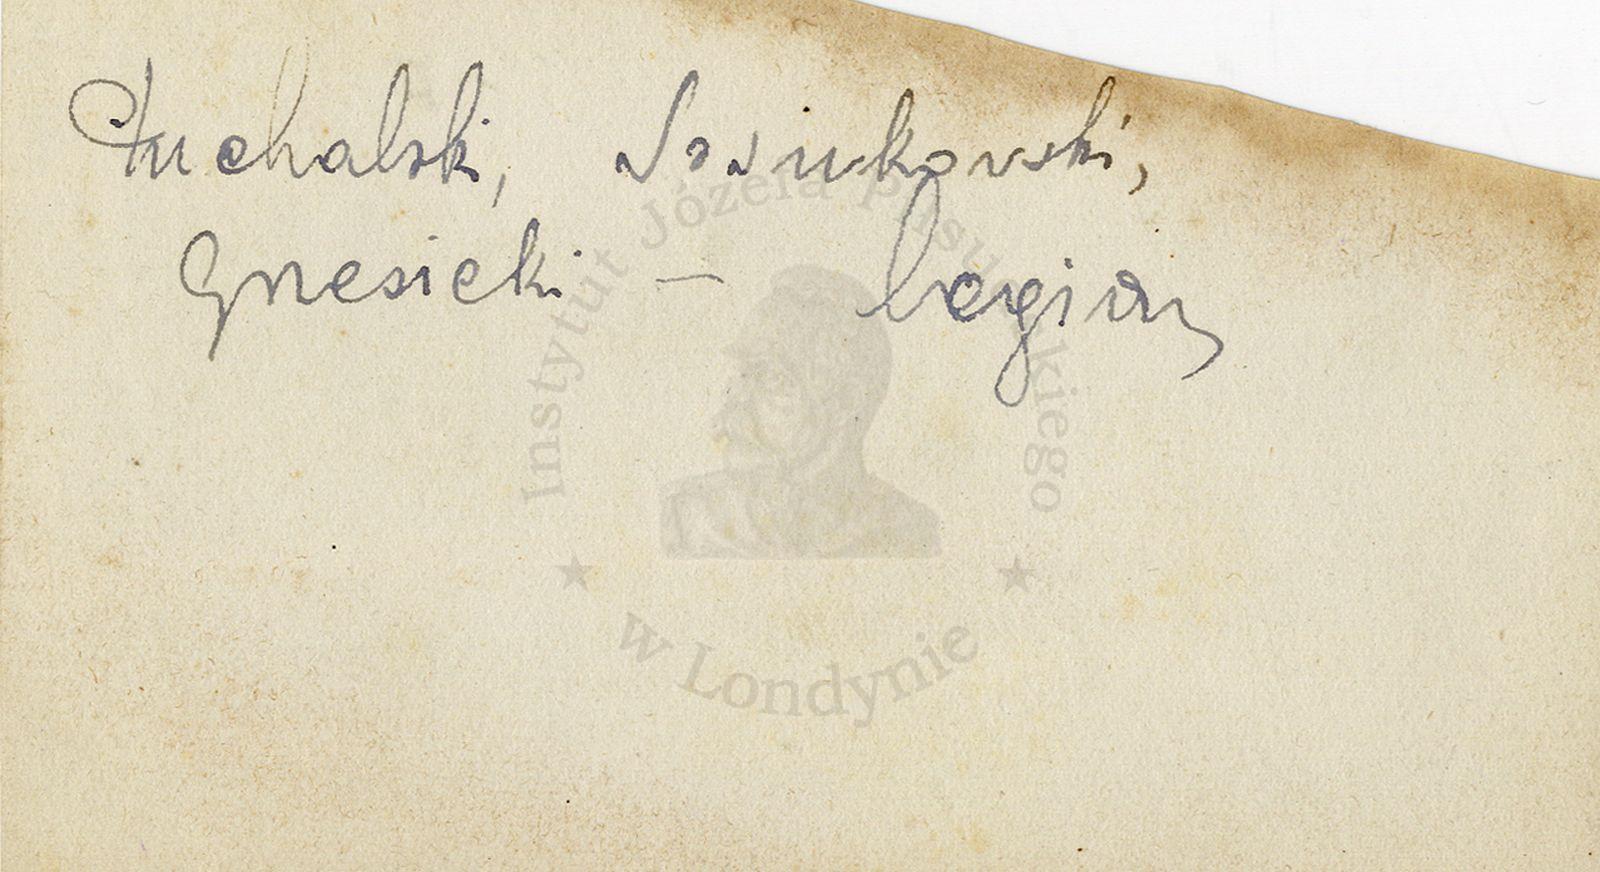 Puchalski, Sosnkowski,
Grzesicki — Legiony
Instytut Józefa Piłsudskiego
w Londynie